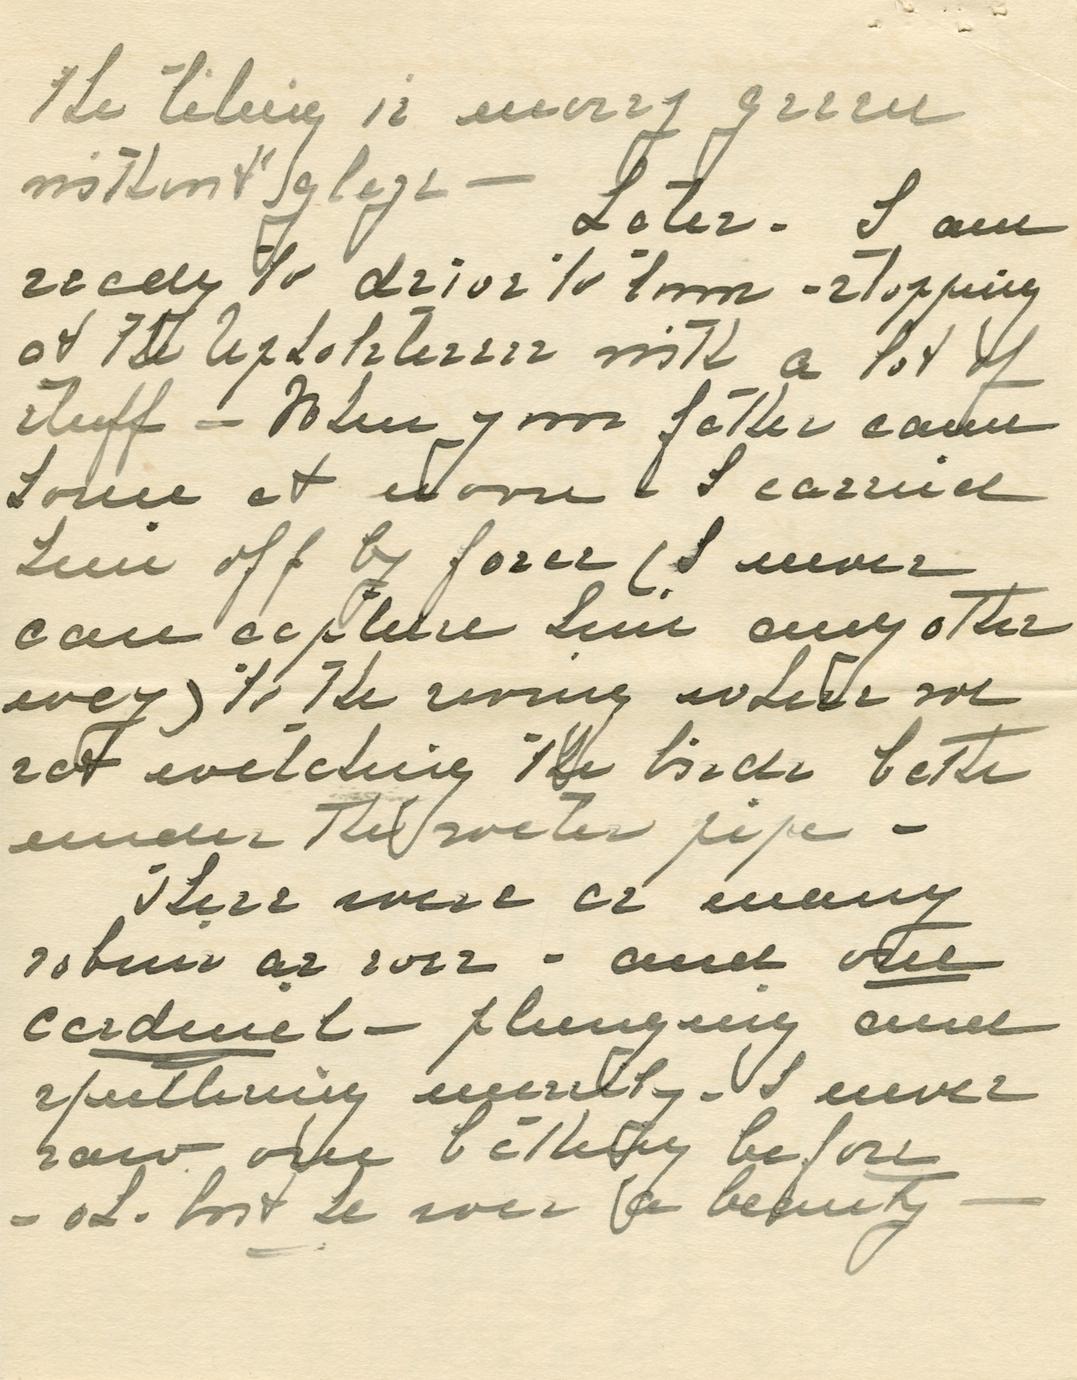 The tiling is mossy green
without glaze —
Later. I am
ready to drive to town - stopping
at the Upholsterers with a lot of
stuff — When your father came
home at noon - I carried
him off by force (I never
can capture him any other
way) to the swing where we
sat watching the birds bathe
under the water pipe -
There were as many
robins as ever - and one
cardinal — plunging and
sputtering merrily. I never
saw one bathing before
- oh. but he was a beauty —